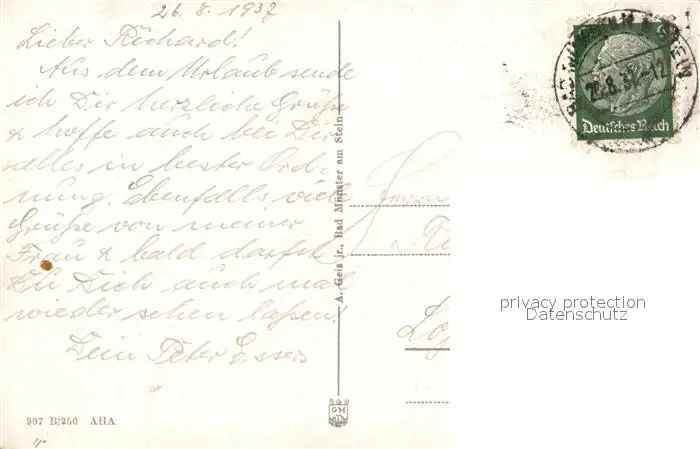 26. 8. 1937
Lieber Richard!
Aus dem Urlaub sende
ich Dir herzliche Grüße
& hoffe auch bei Dir
alles in bester Ord-
nung. Ebenfalls viele
Grüße von meiner
Frau & bald darfst
Du Dich auch mal
wieder sehen laßen!
Dein Peter Essers
907 B/250 AHA
A. Geis jr., Bad Münster am Stein
GM
Herrn
BAD MÜNSTER A STEIN
26.8.37.-12
6
Deutsches Reich
privacy protection
Datenschutz